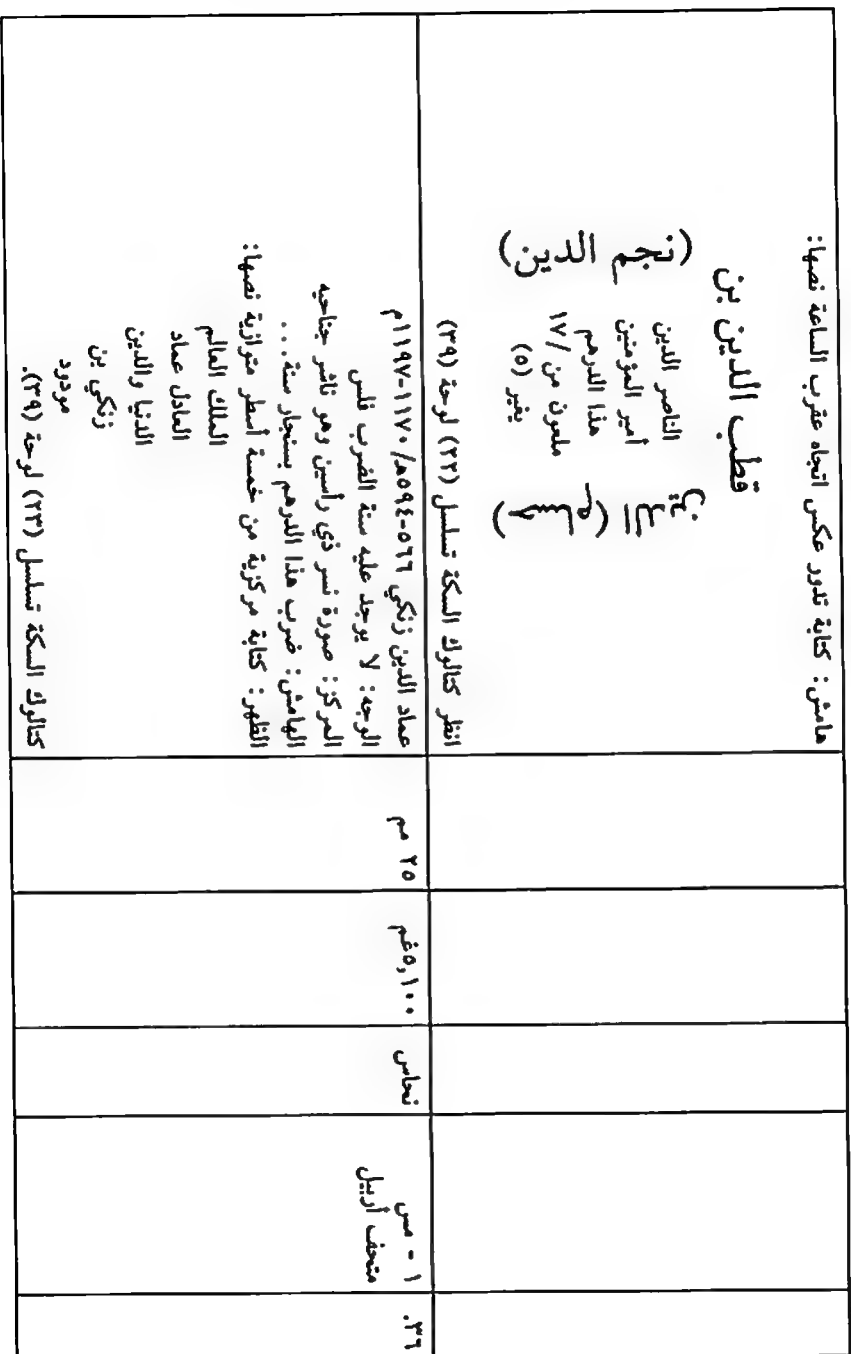 هامش: كتابة تدور عكس اتجاه عقرب الساعة نصها:
قطب الدين بن
(نجم الدين)
الناصر الدين
أمير المؤمنين
هذا الدرهم
ملعون من /١٧
يغير (٥)
(حسام) الدين
انظر كتالوك السكة تسلسل (٢٢) لوحة (٣٩)
٣٦.
١ - مس
متحف أربيل
نحاس
٥,١٠٠غم
٢٥ مم
عماد الدين زنكي ٥٦٦-٥٩٤هـ/١١٧٠-١١٩٧م
الوجه: لا يوجد عليه سنة الضرب فلس
المركز: صورة نسر ذي رأسين وهو ناشر جناحيه
الهامش: ضرب هذا الدرهم بسنجار سنة...
الظهر: كتابة مركزية من خمسة أسطر متوازية نصها:
الملك العالم
العادل عماد
الدنيا والدين
زنكي بن
مودود
كتالوك السكة تسلسل (٢٣) لوحة (٣٩).